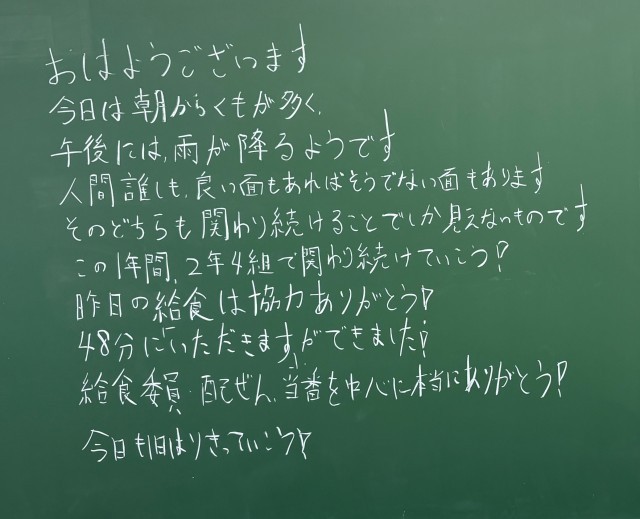 おはようございます
今日は朝からくもが多く、
午後には、雨が降るようです
人間誰しも、良い面もあればそうでない面もあります
そのどちらも関わり続けることでしか見えないものです
この1年間、2年4組で関わり続けていこう!
昨日の給食は協力ありがとう!
48分に「いただきます」ができました!
給食委員・配ぜん、当番を中心に本当にありがとう!
今日も1日はりきっていこう!